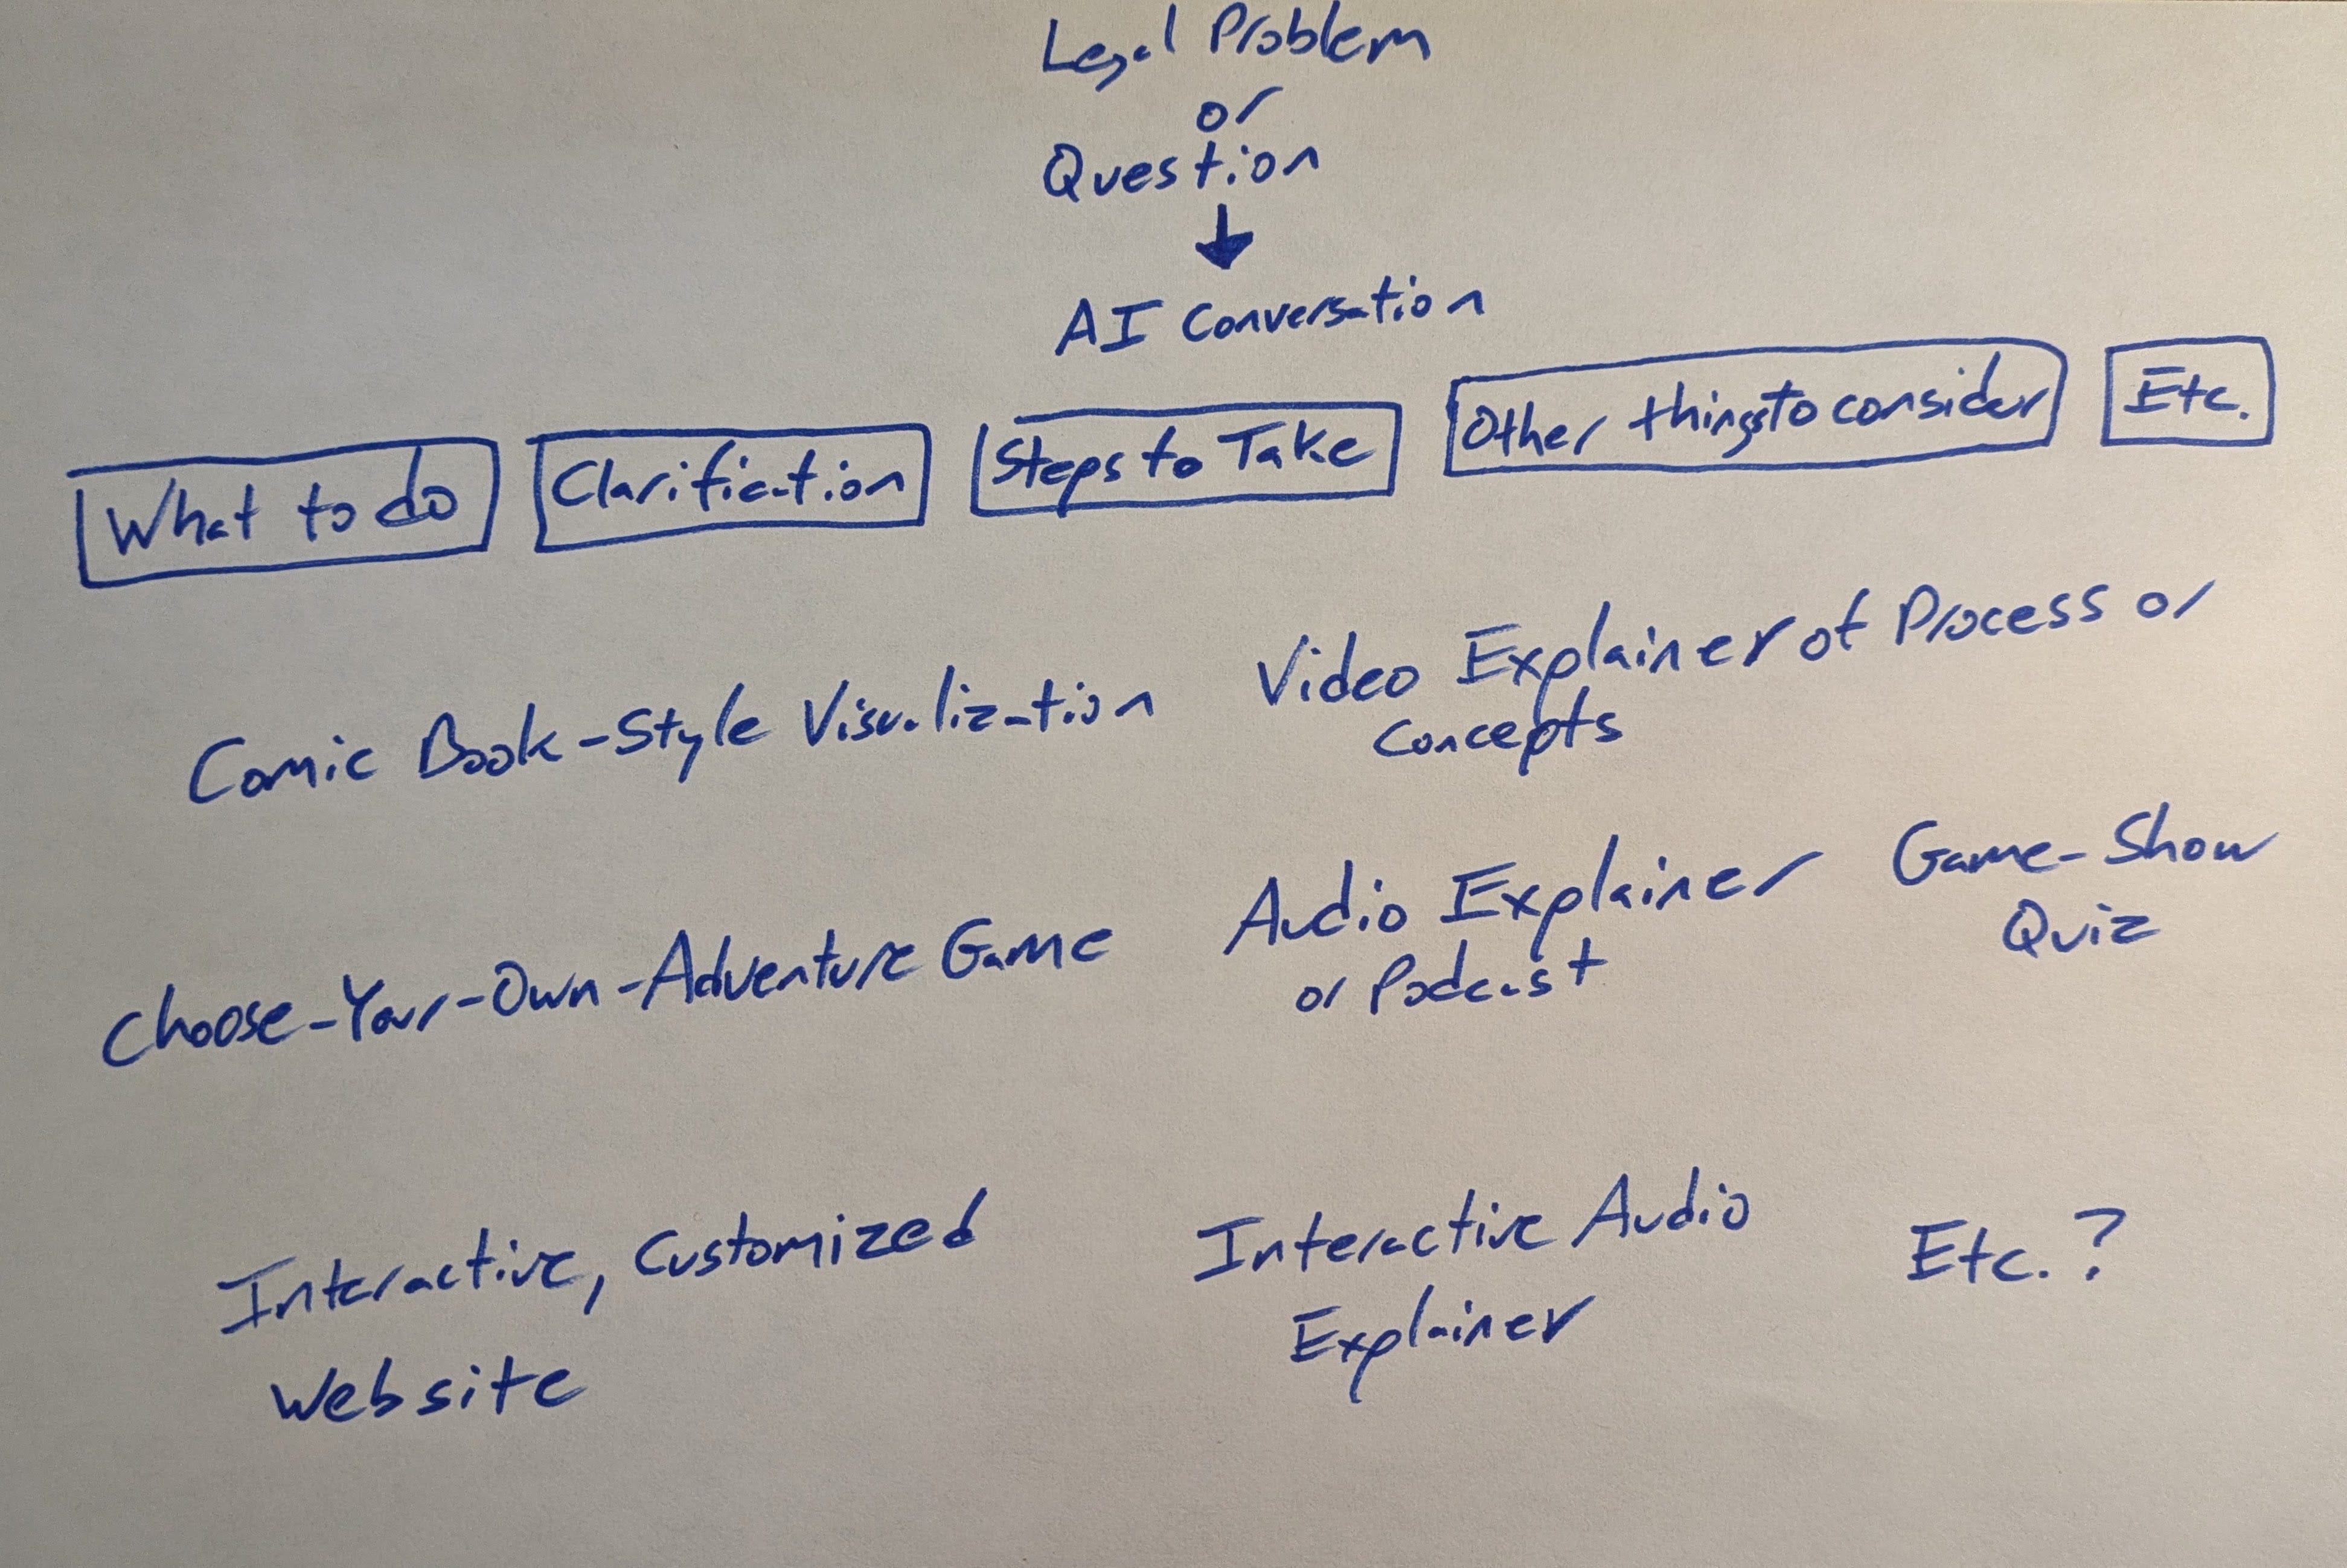 Legal Problem
or
Question
AI Conversation
What to do
Clarification
Steps to Take
Other things to consider
Etc.
Comic Book-Style Visualization
Video Explainer of Process or
Concepts
Choose-Your-Own-Adventure Game
Audio Explainer
or Podcast
Game-Show
Quiz
Interactive, Customized
Website
Interactive Audio
Explainer
Etc.?